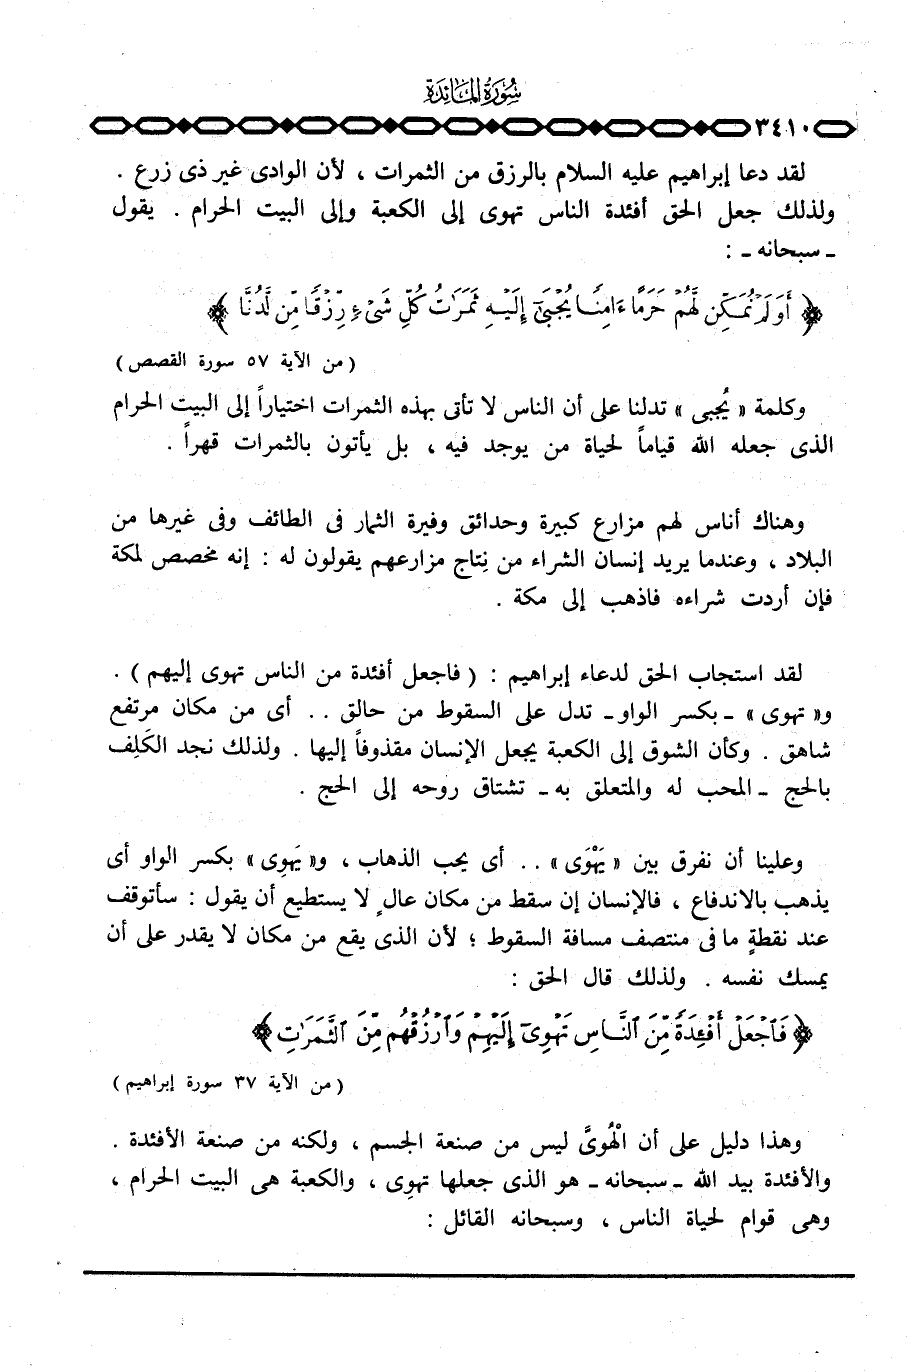 سُورَةُ المَائِدَة
٣٤١٠
لقد دعا إبراهيم عليه السلام بالرزق من الثمرات ، لأن الوادى غير ذى زرع .
ولذلك جعل الحق أفئدة الناس تهوى إلى الكعبة وإلى البيت الحرام . يقول
ـ سبحانه ـ :
﴿ أَوَلَمْ نُمَكِّن لَّهُمْ حَرَمًا ءَامِنًا يُجْبَىٰٓ إِلَيْهِ ثَمَرَٰتُ كُلِّ شَىْءٍ رِّزْقًا مِّن لَّدُنَّا ﴾
( من الآية ٥٧ سورة القصص )
وكلمة « يُجبى » تدلنا على أن الناس لا تأتى بهذه الثمرات اختياراً إلى البيت الحرام
الذى جعله الله قياماً لحياة من يوجد فيه ، بل يأتون بالثمرات قهراً .
وهناك أناس لهم مزارع كبيرة وحدائق وفيرة الثمار فى الطائف وفى غيرها من
البلاد ، وعندما يريد إنسان الشراء من نِتاج مزارعهم يقولون له : إنه مخصص لمكة
فإن أردت شراءه فاذهب إلى مكة .
لقد استجاب الحق لدعاء إبراهيم : ( فاجعل أفئدة من الناس تهوى إليهم ) .
و« تهوى » ـ بكسر الواو ـ تدل على السقوط من حالق . . أى من مكان مرتفع
شاهق . وكأن الشوق إلى الكعبة يجعل الإنسان مقذوفاً إليها . ولذلك نجد الكَلِف
بالحج ـ المحب له والمتعلق به ـ تشتاق روحه إلى الحج .
وعلينا أن نفرق بين « يَهْوَى » . . أى يحب الذهاب ، و« يَهوِى » بكسر الواو أى
يذهب بالاندفاع ، فالإنسان إن سقط من مكان عالٍ لا يستطيع أن يقول : سأتوقف
عند نقطةٍ ما فى منتصف مسافة السقوط ؛ لأن الذى يقع من مكان لا يقدر على أن
يمسك نفسه . ولذلك قال الحق :
﴿ فَٱجْعَلْ أَفْئِدَةً مِّنَ ٱلنَّاسِ تَهْوِىٓ إِلَيْهِمْ وَٱرْزُقْهُم مِّنَ ٱلثَّمَرَٰتِ ﴾
( من الآية ٣٧ سورة إبراهيم )
وهذا دليل على أن الْهُوِىَّ ليس من صنعة الجسم ، ولكنه من صنعة الأفئدة .
والأفئدة بيد الله ـ سبحانه ـ هو الذى جعلها تهوِى ، والكعبة هى البيت الحرام ،
وهى قوام لحياة الناس ، وسبحانه القائل :